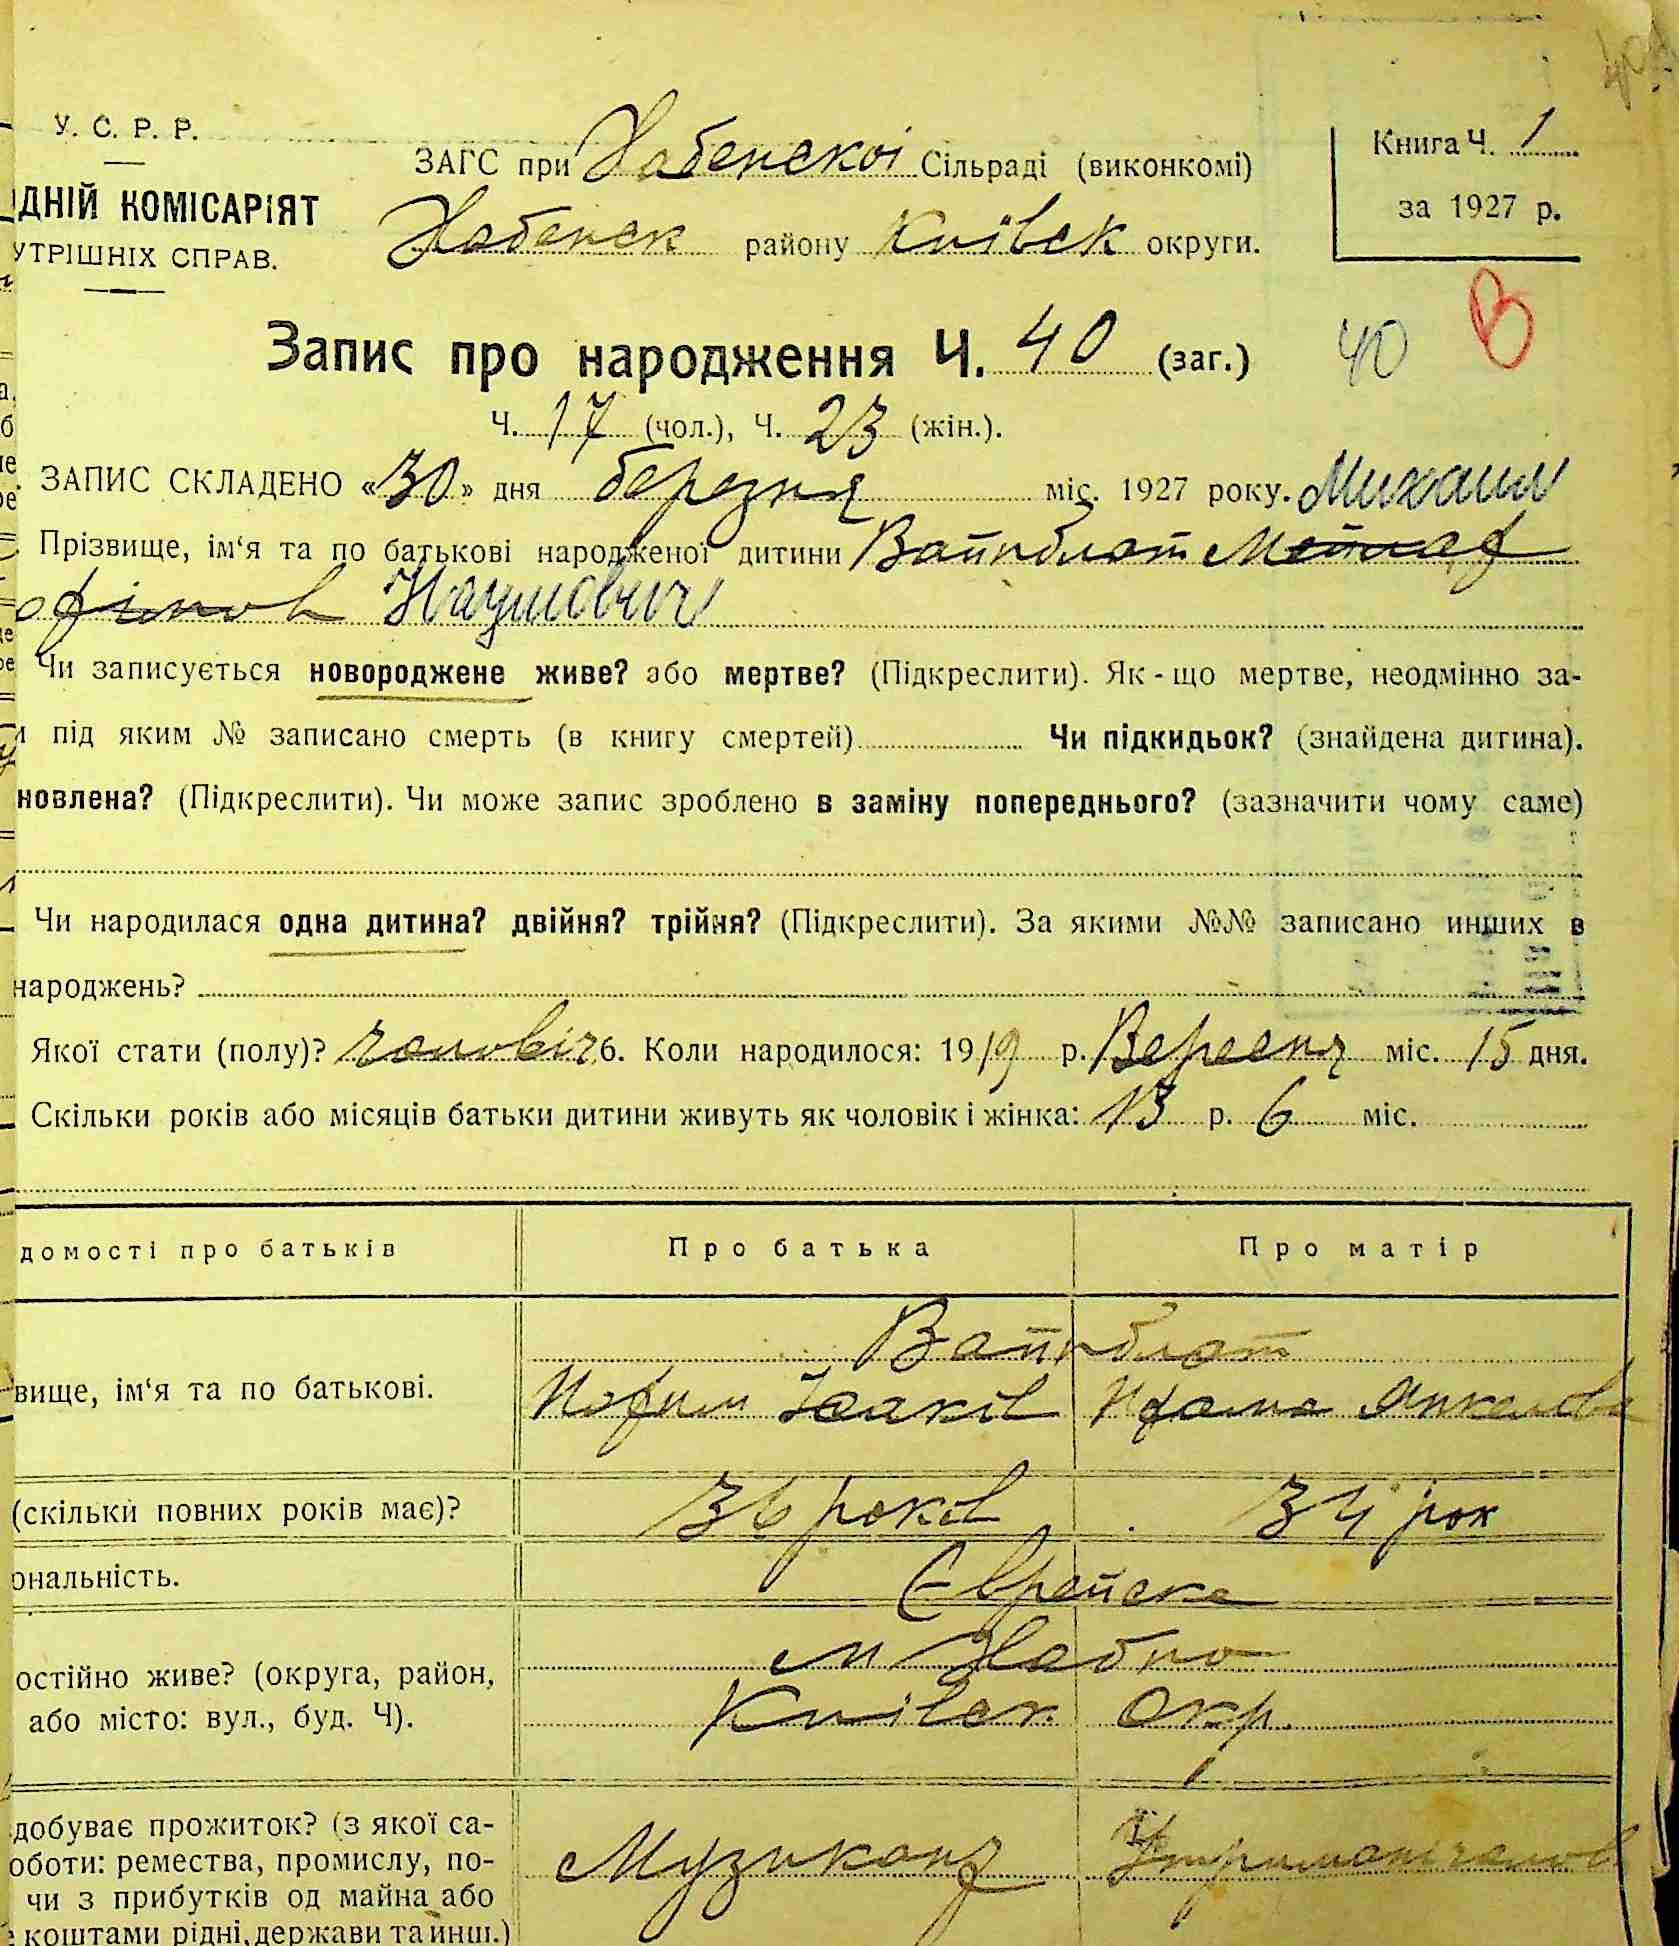 У. С. Р. Р.
ЗАГС при Хабенскоі Сільраді (виконкомі)
Книга Ч. 1
ДНІЙ КОМІСАРІЯТ
Хабенск району Київск округи.
за 1927 р.
УТРІШНІХ СПРАВ.
Запис про народження Ч. 40 (заг.) 40 В
Ч. 17 (чол.), Ч. 23 (жін.).
ЗАПИС СКЛАДЕНО «30» дня березня міс. 1927 року. Михаил
Прізвище, ім‘я та по батькові народженої дитини Вайнблат
Наумович
Чи записується новороджене живе? або мертве? (Підкреслити). Як-що мертве, неодмінно за-
під яким № записано смерть (в книгу смертей) Чи підкидьок? (знайдена дитина).
новлена? (Підкреслити). Чи може запис зроблено в заміну попереднього? (зазначити чому саме)
Чи народилася одна дитина? двійня? трійня? (Підкреслити). За якими №№ записано инших в
народжень?
Якої стати (полу)? чоловіч 6. Коли народилося: 1919 р. Вересня міс. 15 дня.
Скільки років або місяців батьки дитини живуть як чоловік і жінка: 13 р. 6 міс.
домості про батьків Про батька Про матір
Вайнблат
вище, ім‘я та по батькові.
Янкелова
(скільки повних років має)? 36 років 34 рок
ональність. Єврейска
м Хабно
остійно живе? (округа, район,
або місто: вул., буд. Ч). Київск Окр.
добуває прожиток? (з якої са-
оботи: ремества, промислу, по- Музикант
чи з прибутків од майна або
коштами рідні, держави та инш.)